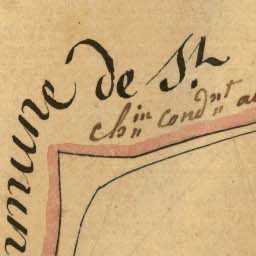 mune de St
ch.in cond.nt a